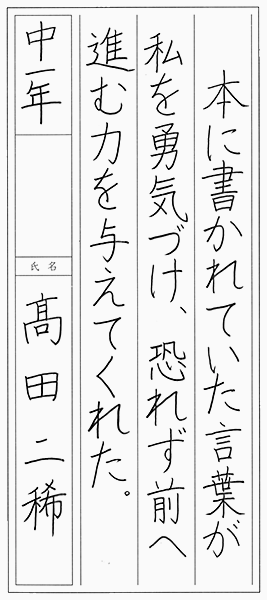 本に書かれていた言葉が
私を勇気づけ、恐れず前へ
進む力を与えてくれた。
中一年
氏名
髙田二稀